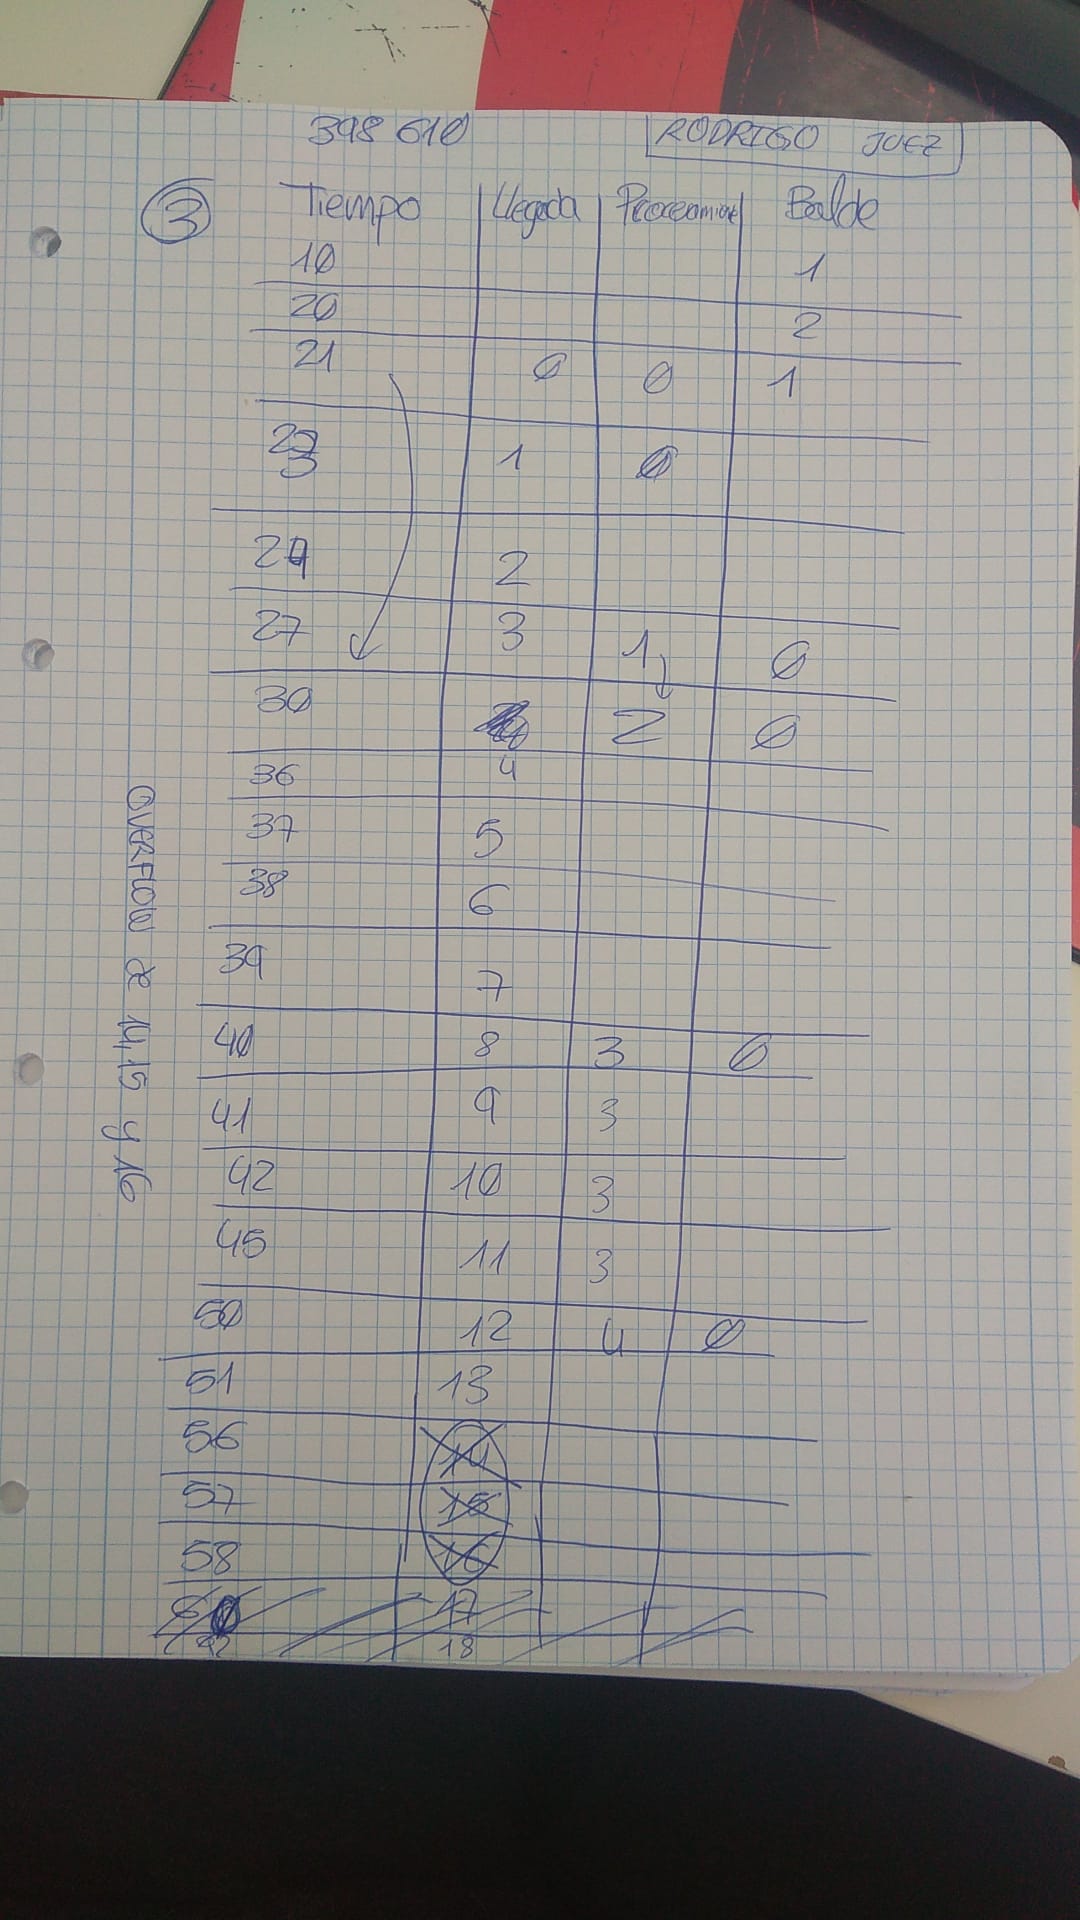 398610 RODRIGO JUEZ
3 Tiempo Llegada Balde
10 1
20 2
21 0 0 1
1 0
24 2
27 3 1 0
30 2 0
36 4
37 5
38 6
39 7
40 8 3 0
41 9 3
42 10 3
45 11 3
50 12 4 0
51 13
56 14
57 15
58 16
17
18
OVERFLOW de 14,15 y 16